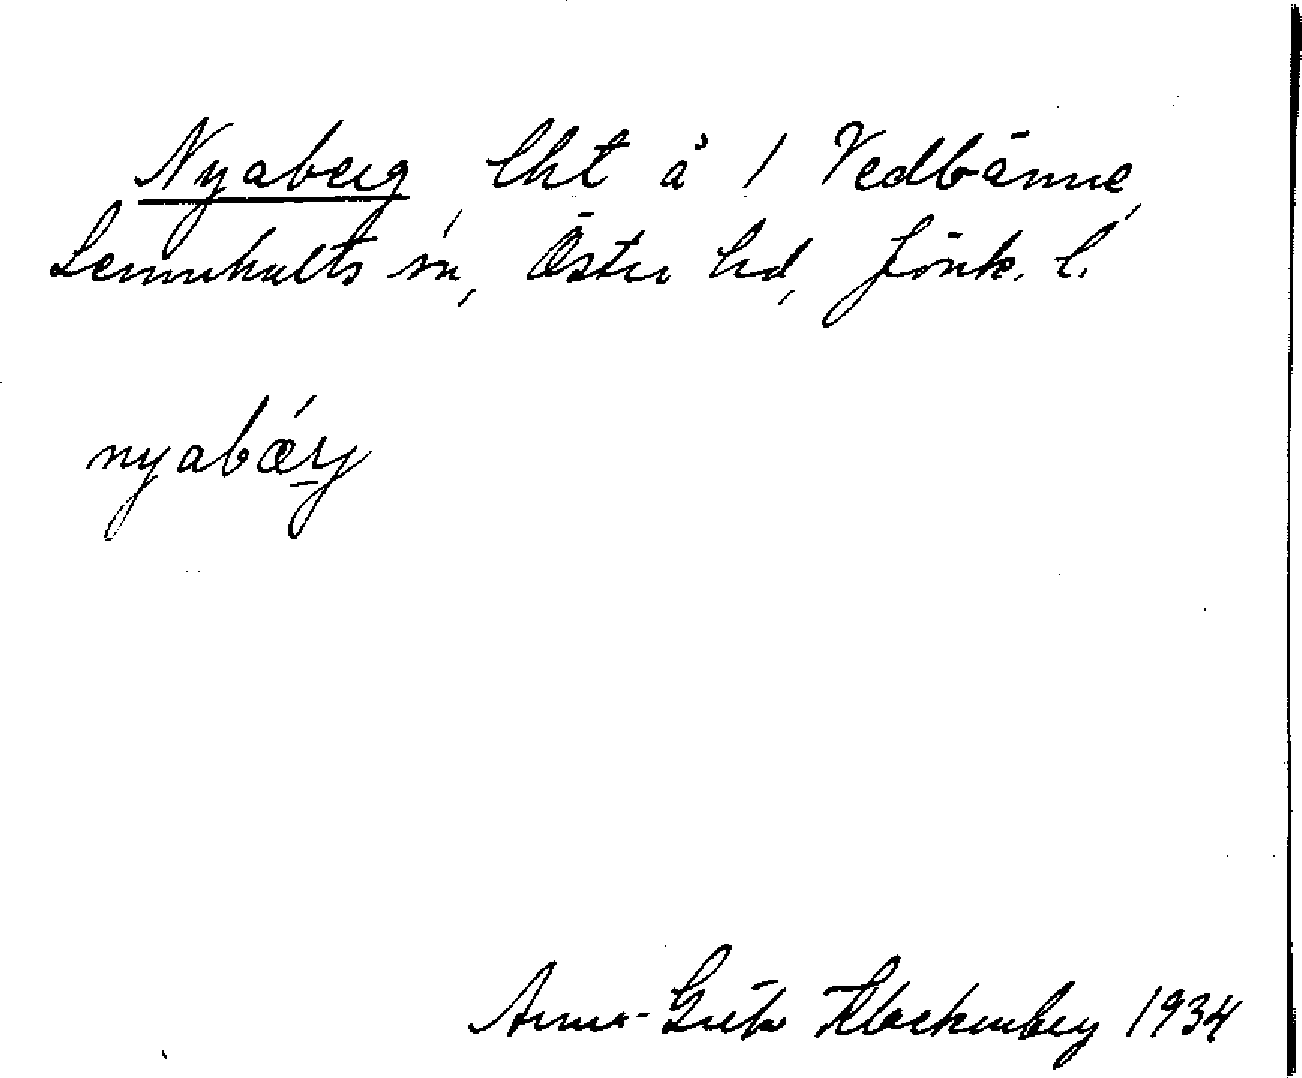 Nyaberg, lht å 1 Vedbänne,
Lemnhults sn, Östra hd, Jönk. l.
nyabǽrj
Anna-Greta Klockenberg 1934